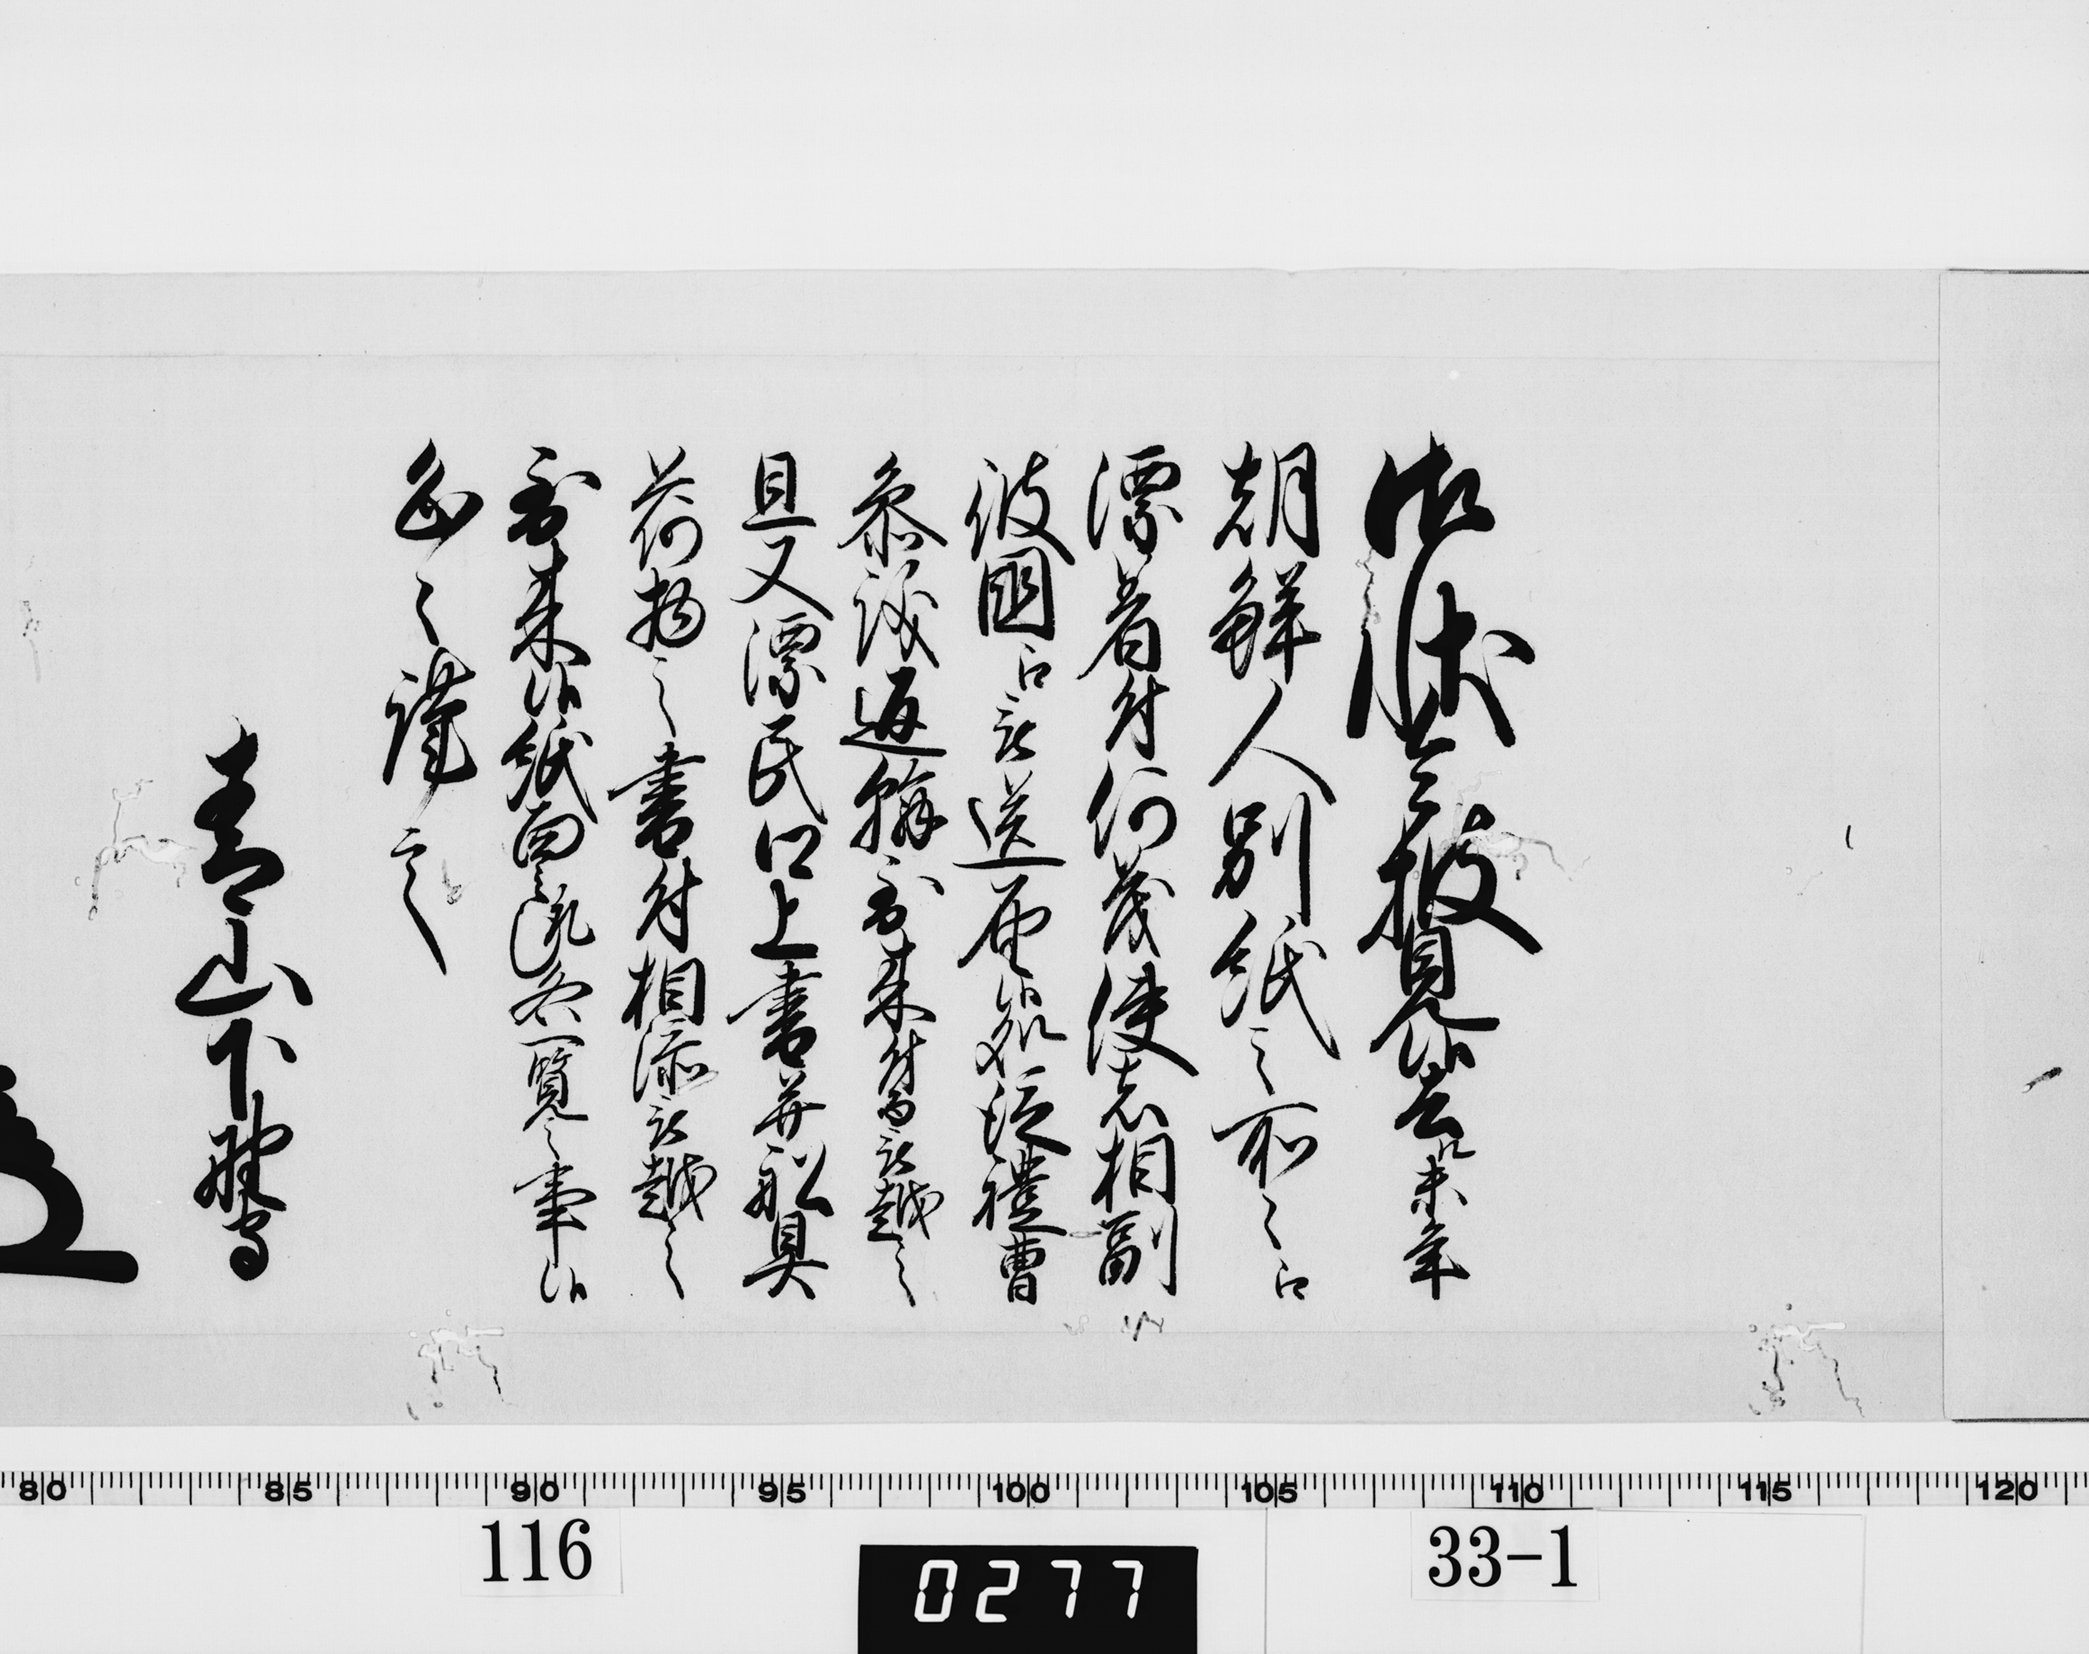 御状令披見候、去ル未年
朝鮮人別紙之所々江
漂着付、何茂使者相副
彼国江被送届候処、従礼曹
参議返翰到来付而被越之
且又漂民口上書并船具
荷物之書付相添被越之
到来候、紙面之趣各一覧之事候
恐々謹言
青山下野守
80 85 90 95 100 105 110 115 120
116
0277
33-1